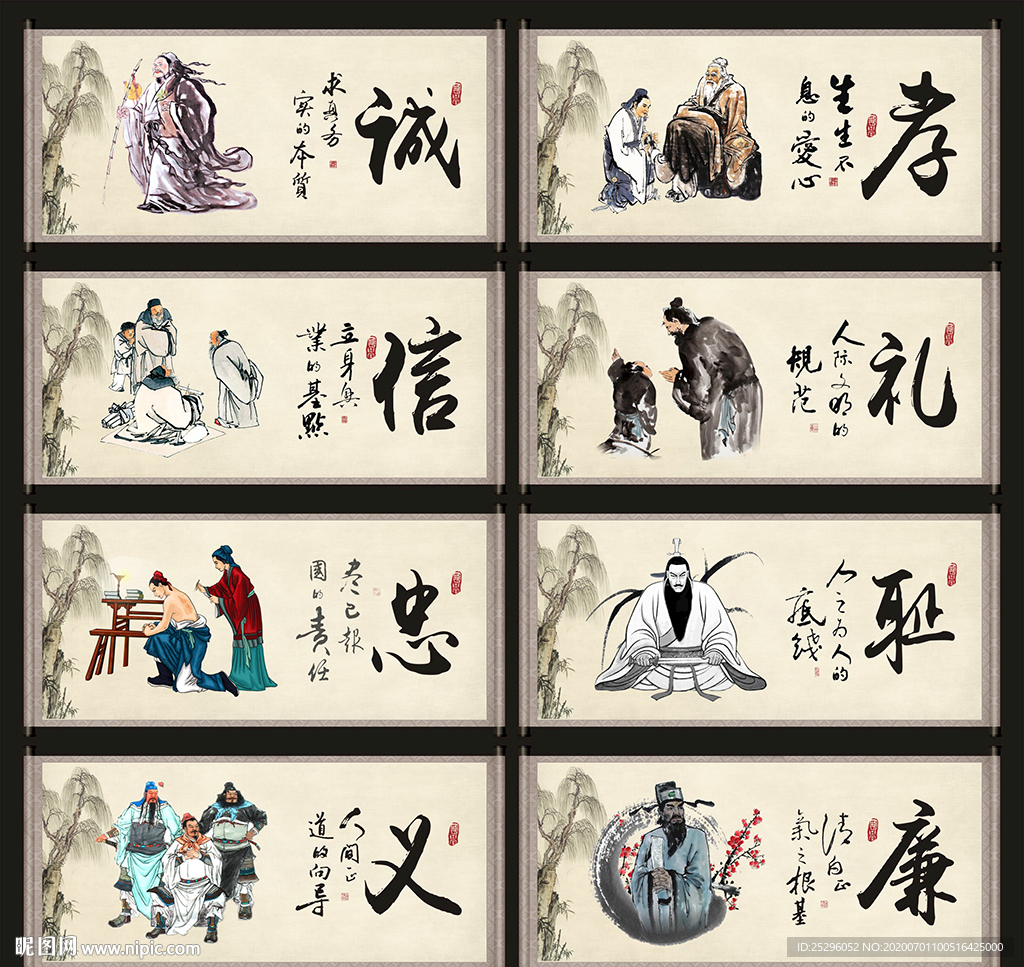 诚
求真务
实的本質
孝
生生不
息的愛心
信
立身興
業的基點
礼
人际文明的
规范
忠
尽己報
國的责任
耻
人之为人的
底线
义
人間正
道的向导
廉
清白正
氣之根基
昵图网 www.nipic.com
ID:25296052 NO:20200701100516425000